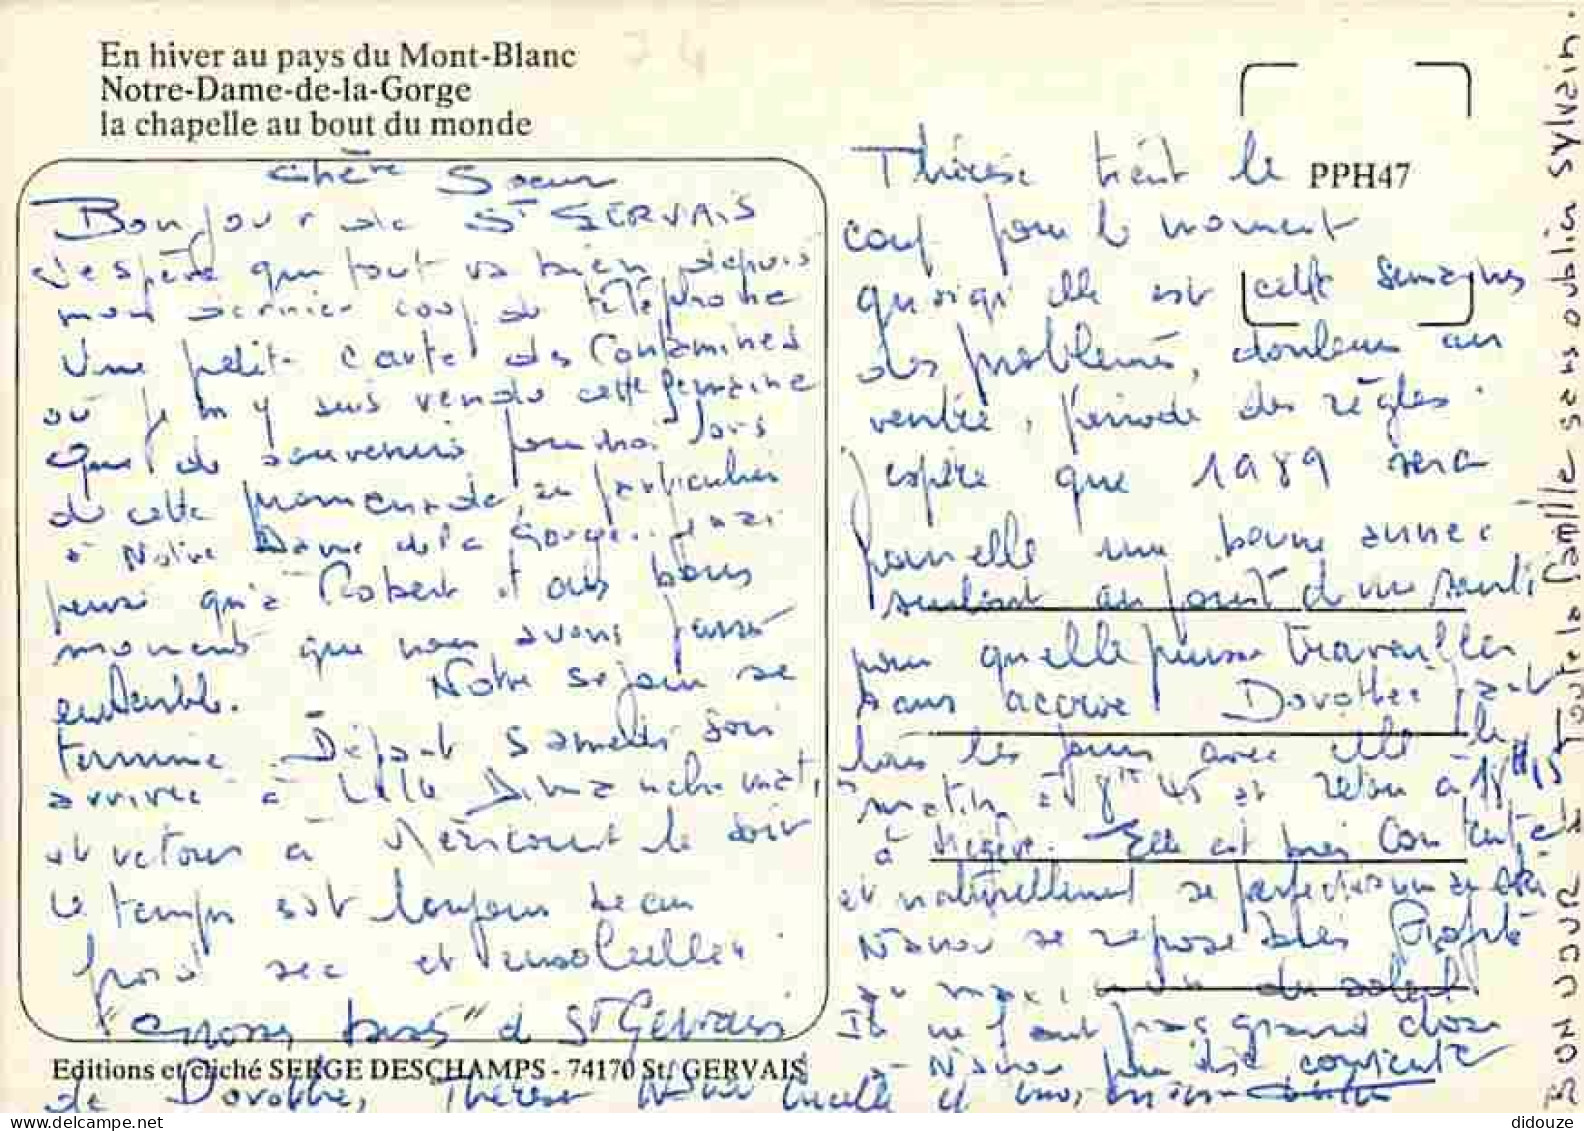 En hiver au pays du Mont-Blanc
Notre-Dame-de-la-Gorge
la chapelle au bout du monde
74
PPH47
Chère Soeur
Bonjour de St GERVAIS
J'espère que tout va bien depuis
mon dernier coup de téléphone
Une petite carte des Contamines
où je m'y suis rendu cette semaine
Que de souvenirs pour moi lors
de cette promenade, en particulier
à Notre Dame de la Gorge. J'ai
pensé qu'à Robert et aux bons
moments que nous avons passé
ensemble. Notre séjour se
termine. Départ Samedi soir
arrivée à Lille Dimanche mat.
et retour à Méricourt le soir
Le temps est toujours beau
froid sec et ensoleillé.
"Grosses bises" de St Gervais
de Dorothée, Thérèse Nanou
Editions et cliché SERGE DESCHAMPS - 74170 St. GERVAIS
Thérèse tient le
coup pour le moment
quoiqu'elle est cette semaine
des problèmes, douleurs au
ventre, période des règles.
espère que 1989 sera
pour elle une bonne année
seulement au point de vue santé
pour qu'elle puisse travailler
sans accroc Dorothée part
tous les jours avec elle le
matin à 8h 45 et retour à 18H15
à Megève. Elle est très contente
et naturellement se perfectionne au ski
Nanou se repose très Profite
au maximum du soleil
Il ne faut pas grand chose
à Nanou pour être contente
et moi
BONJOUR à Toute la famille sans oublier Sylvain.
didouze